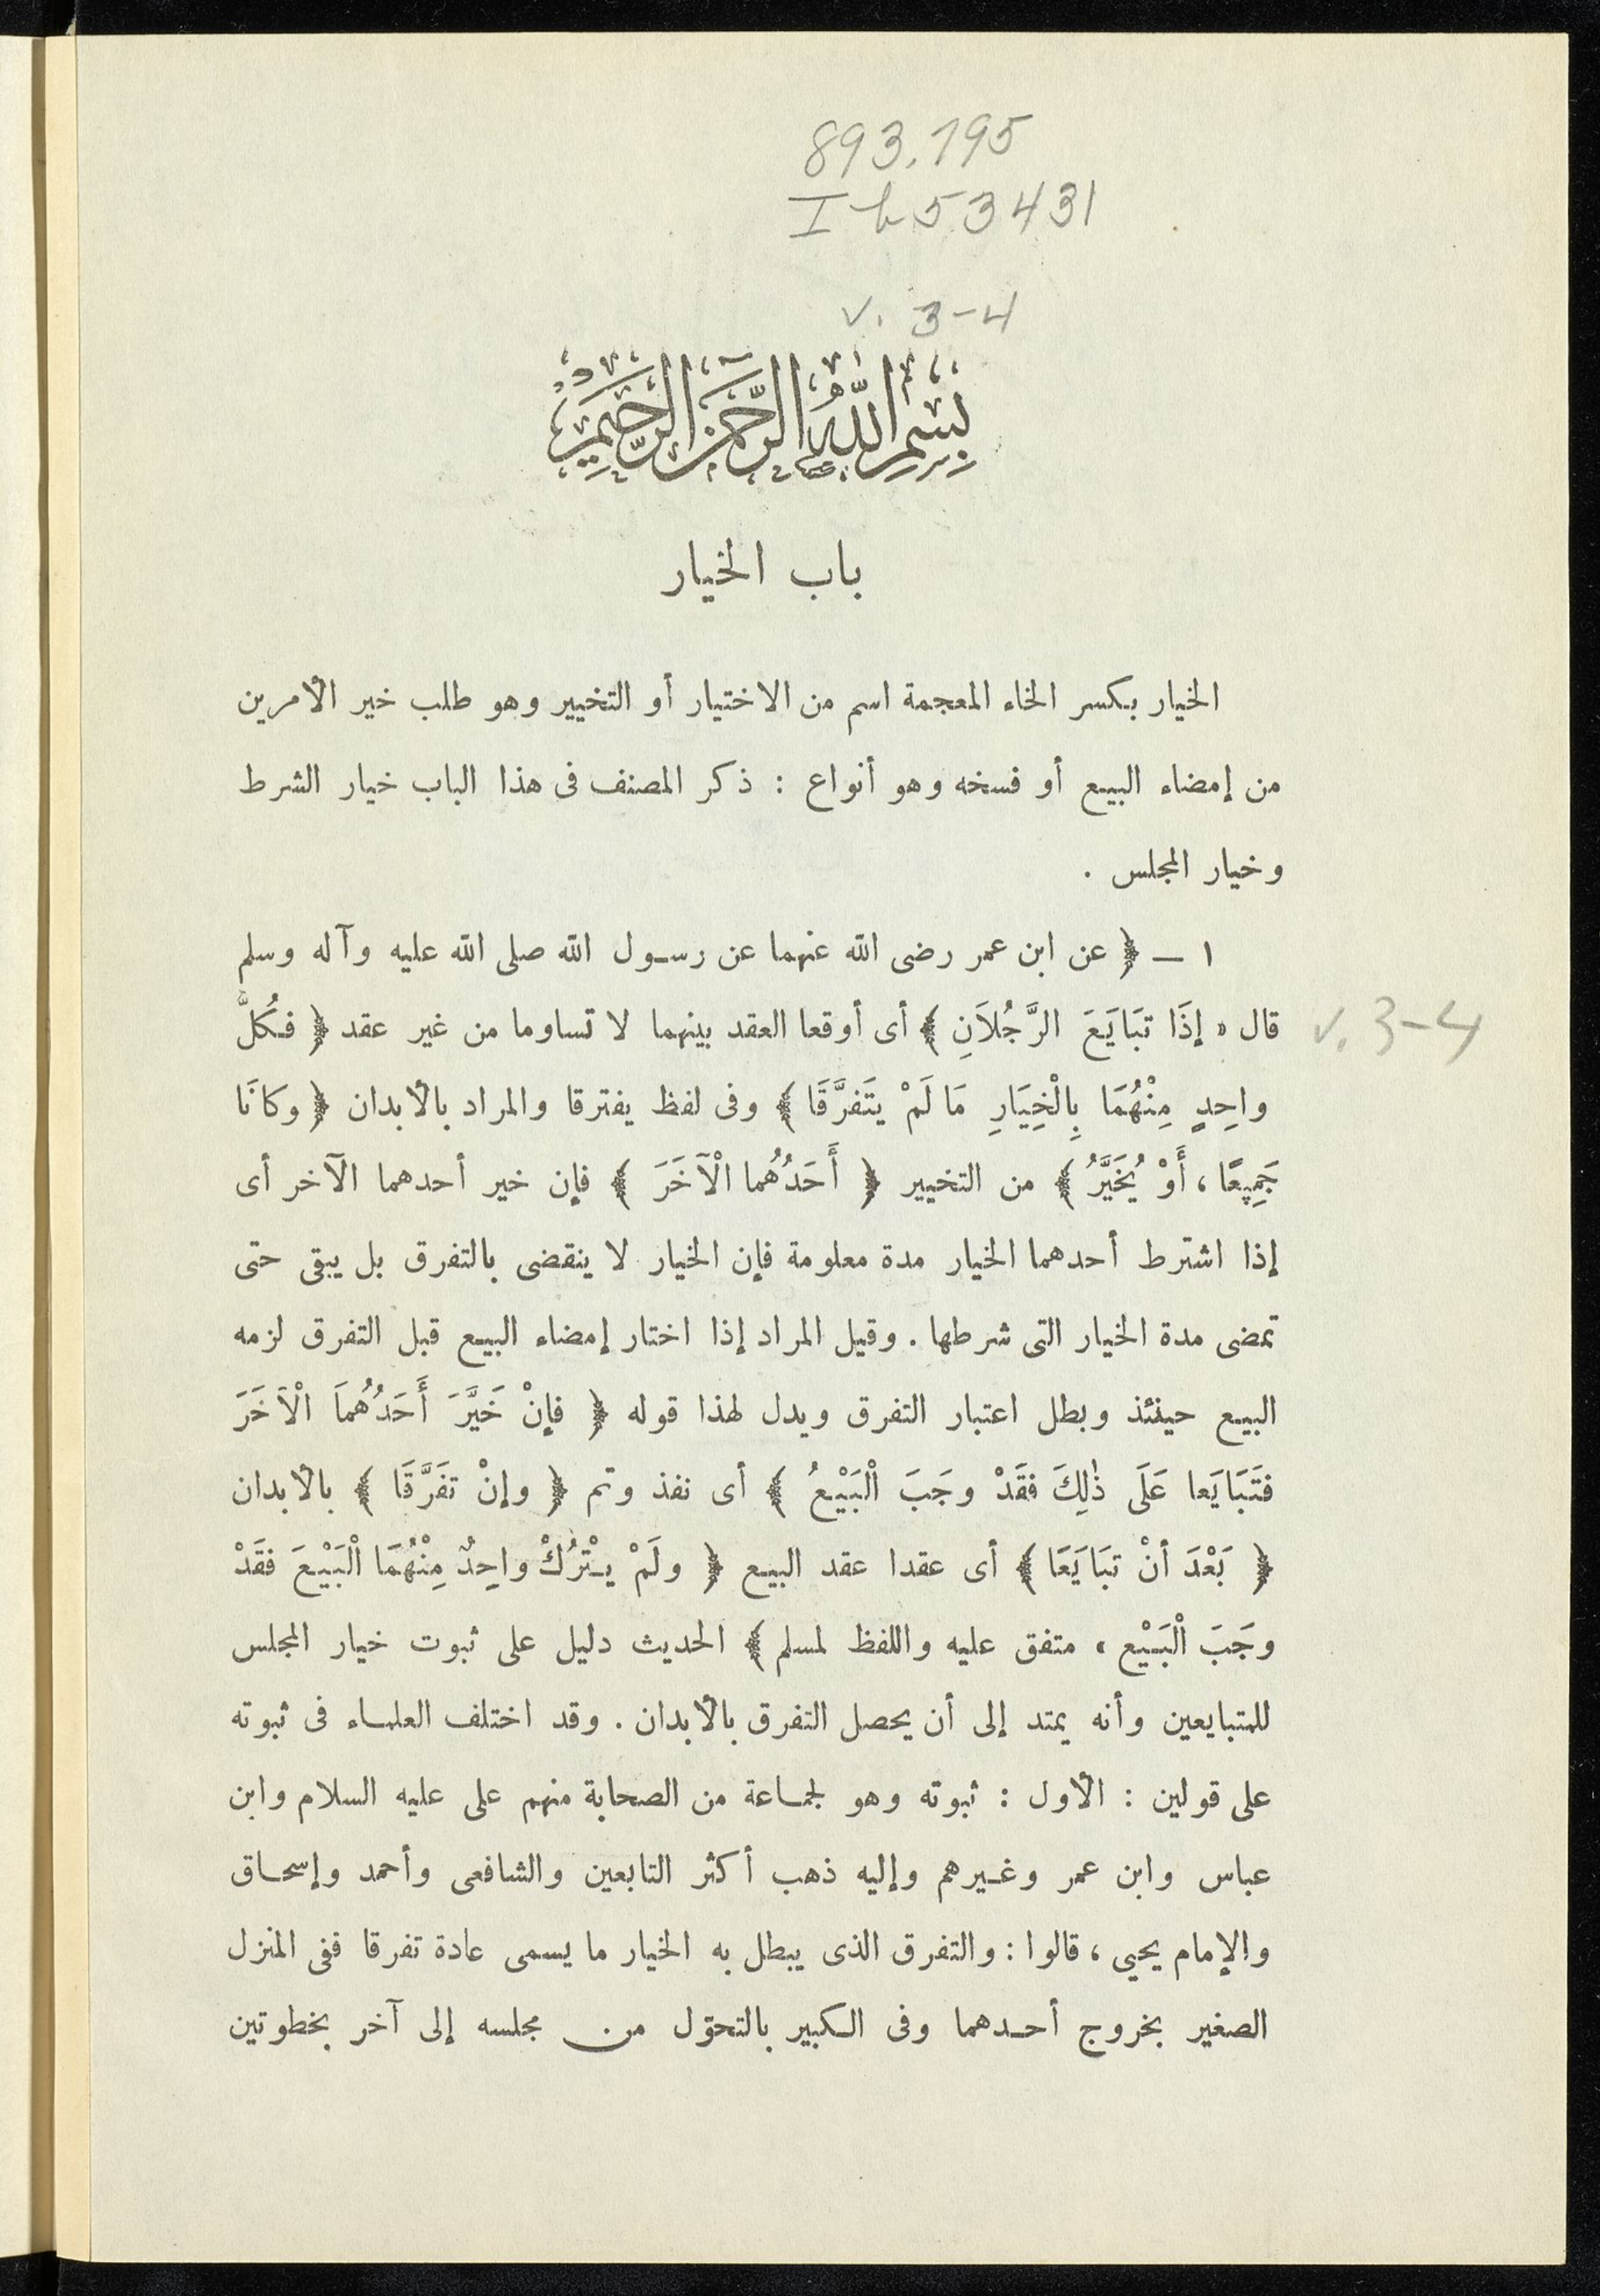 893.795
Ib53431
v. 3-4
بِسْمِ اللَّهِ الرَّحْمَنِ الرَّحِيمِ
باب الخيار
الخيار بكسر الخاء المعجمة اسم من الاختيار أو التخيير وهو طلب خير الأمرين
من إمضاء البيع أو فسخه وهو أنواع : ذكر المصنف فى هذا الباب خيار الشرط
وخيار المجلس .
١ — ﴿ عن ابن عمر رضى الله عنهما عن رسول الله صلى الله عليه وآله وسلم
قال « إذَا تبَايَعَ الرَّجُلَانِ ﴾ أى أوقعا العقد بينهما لا تساوما من غير عقد ﴿ فكُلُّ
v. 3-4
واحِدٍ مِنْهُمَا بِالْخِيَارِ مَا لَمْ يتَفرَّقَا ﴾ وفى لفظ يفترقا والمراد بالأبدان ﴿ وكانَا
جَمِيعًا ، أَوْ يُخَيَّرُ ﴾ من التخيير ﴿ أَحَدُهُما الْآخَرَ ﴾ فإن خير أحدهما الآخر أى
إذا اشترط أحدهما الخيار مدة معلومة فإن الخيار لا ينقضى بالتفرق بل يبقى حتى
تمضى مدة الخيار التى شرطها . وقيل المراد إذا اختار إمضاء البيع قبل التفرق لزمه
البيع حينئذ وبطل اعتبار التفرق ويدل لهذا قوله ﴿ فإنْ خَيَّرَ أَحَدُهُمَا الْآخَرَ
فتَبَايَعا عَلَى ذٰلِكَ فقَدْ وجَبَ الْبَيْعُ ﴾ أى نفذ وتم ﴿ وإنْ تفَرَّقَا ﴾ بالأبدان
﴿ بَعْدَ أنْ تبَايَعَا ﴾ أى عقدا عقد البيع ﴿ ولَمْ يتْرُكْ واحِدٌ مِنْهُمَا الْبَيْعَ فقَدْ
وجَبَ الْبَيْع » متفق عليه واللفظ لمسلم ﴾ الحديث دليل على ثبوت خيار المجلس
للمتبايعين وأنه يمتد إلى أن يحصل التفرق بالأبدان . وقد اختلف العلماء فى ثبوته
على قولين : الأول : ثبوته وهو لجماعة من الصحابة منهم على عليه السلام وابن
عباس وابن عمر وغيرهم وإليه ذهب أكثر التابعين والشافعى وأحمد وإسحاق
والإمام يحيى ، قالوا : والتفرق الذى يبطل به الخيار ما يسمى عادة تفرقا ففى المنزل
الصغير بخروج أحدهما وفى الكبير بالتحوّل من مجلسه إلى آخر بخطوتين